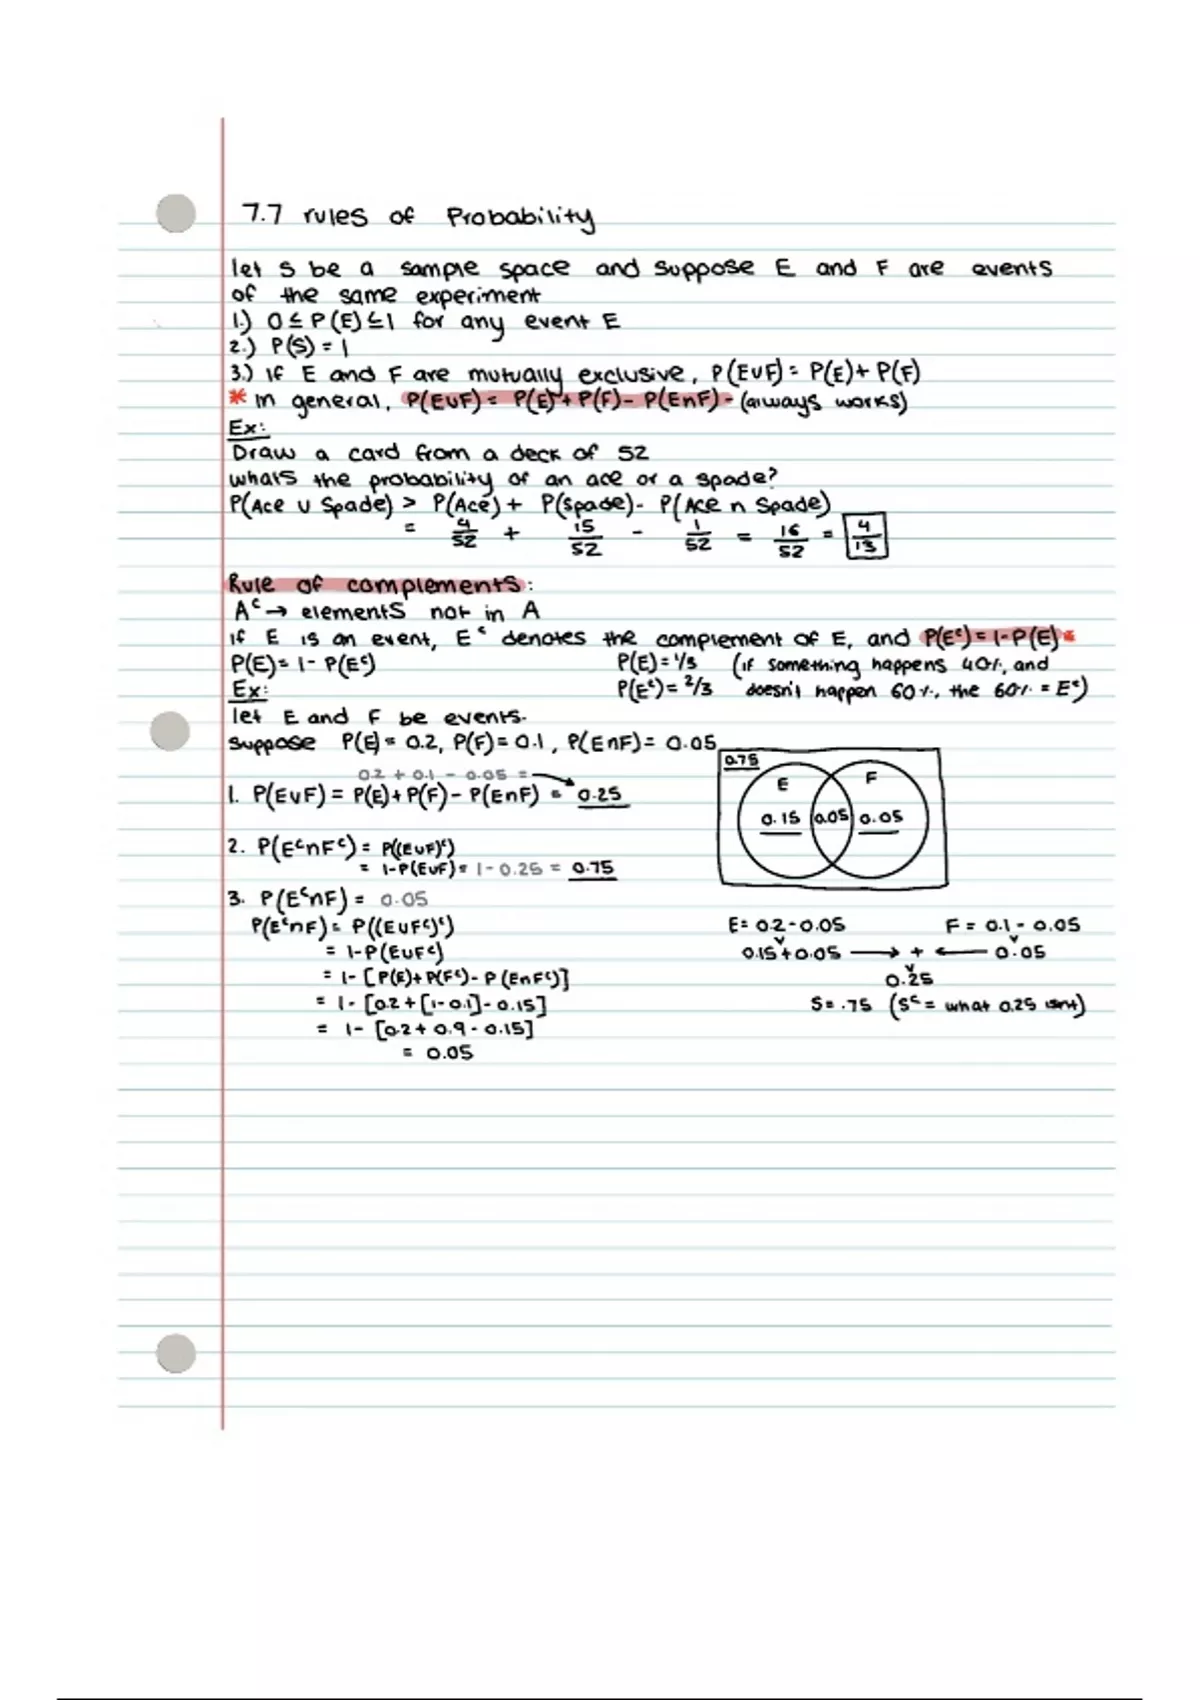 7.7 rules of Probability
let S be a sample space and suppose E and F are events
of the same experiment
1.) 0 ≤ P(E) ≤ 1 for any event E
2.) P(S) = 1
3.) if E and F are mutually exclusive, P(E∪F) = P(E) + P(F)
* in general, P(E∪F) = P(E) + P(F) - P(E∩F) - (always works)
Ex:
Draw a card from a deck of 52
whats the probability of an ace or a spade?
P(Ace ∪ Spade) > P(Ace) + P(spade) - P(Ace ∩ Spade)
= 4/52 + 15/52 - 1/52 = 16/52 = 4/13
Rule of complements:
Aᶜ → elements not in A
if E is an event, Eᶜ denotes the complement of E, and P(Eᶜ) = 1 - P(E) *
P(E) = 1 - P(Eᶜ) P(E) = 1/3 (if something happens 40%, and
Ex: P(Eᶜ) = 2/3 doesn't happen 60%, the 60% = Eᶜ)
let E and F be events.
suppose P(E) = 0.2, P(F) = 0.1, P(E∩F) = 0.05
0.2 + 0.1 - 0.05 =
1. P(E∪F) = P(E) + P(F) - P(E∩F) = 0.25
0.75
E F
0.15 0.05 0.05
2. P(Eᶜ∩Fᶜ) = P((E∪F)ᶜ)
= 1-P(E∪F) = 1 - 0.25 = 0.75
3. P(Eᶜ∩F) = 0.05
P(Eᶜ∩F) = P((E∪Fᶜ)ᶜ)
= 1-P(E∪Fᶜ)
= 1- [P(E)+P(Fᶜ)-P(E∩Fᶜ)]
= 1- [0.2+[1-0.1]-0.15]
= 1- [0.2+0.9-0.15]
= 0.05
E = 0.2-0.05 F = 0.1-0.05
0.15+0.05 → + ← 0.05
0.25
S = .75 (Sᶜ = what 0.25 isnt)